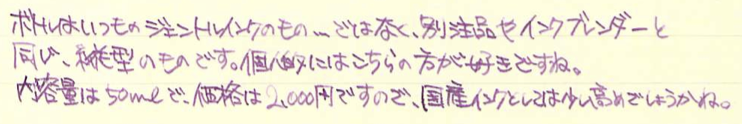 ボトルはいつものジェントルインクのもの…ではなく、別注品やインクブレンダーと
同じ、型のものです。個人的にはこちらの方が好きですね。
内容量は50mlで、価格は2,000円ですので、国産インクとしては少し高めでしょうかね。